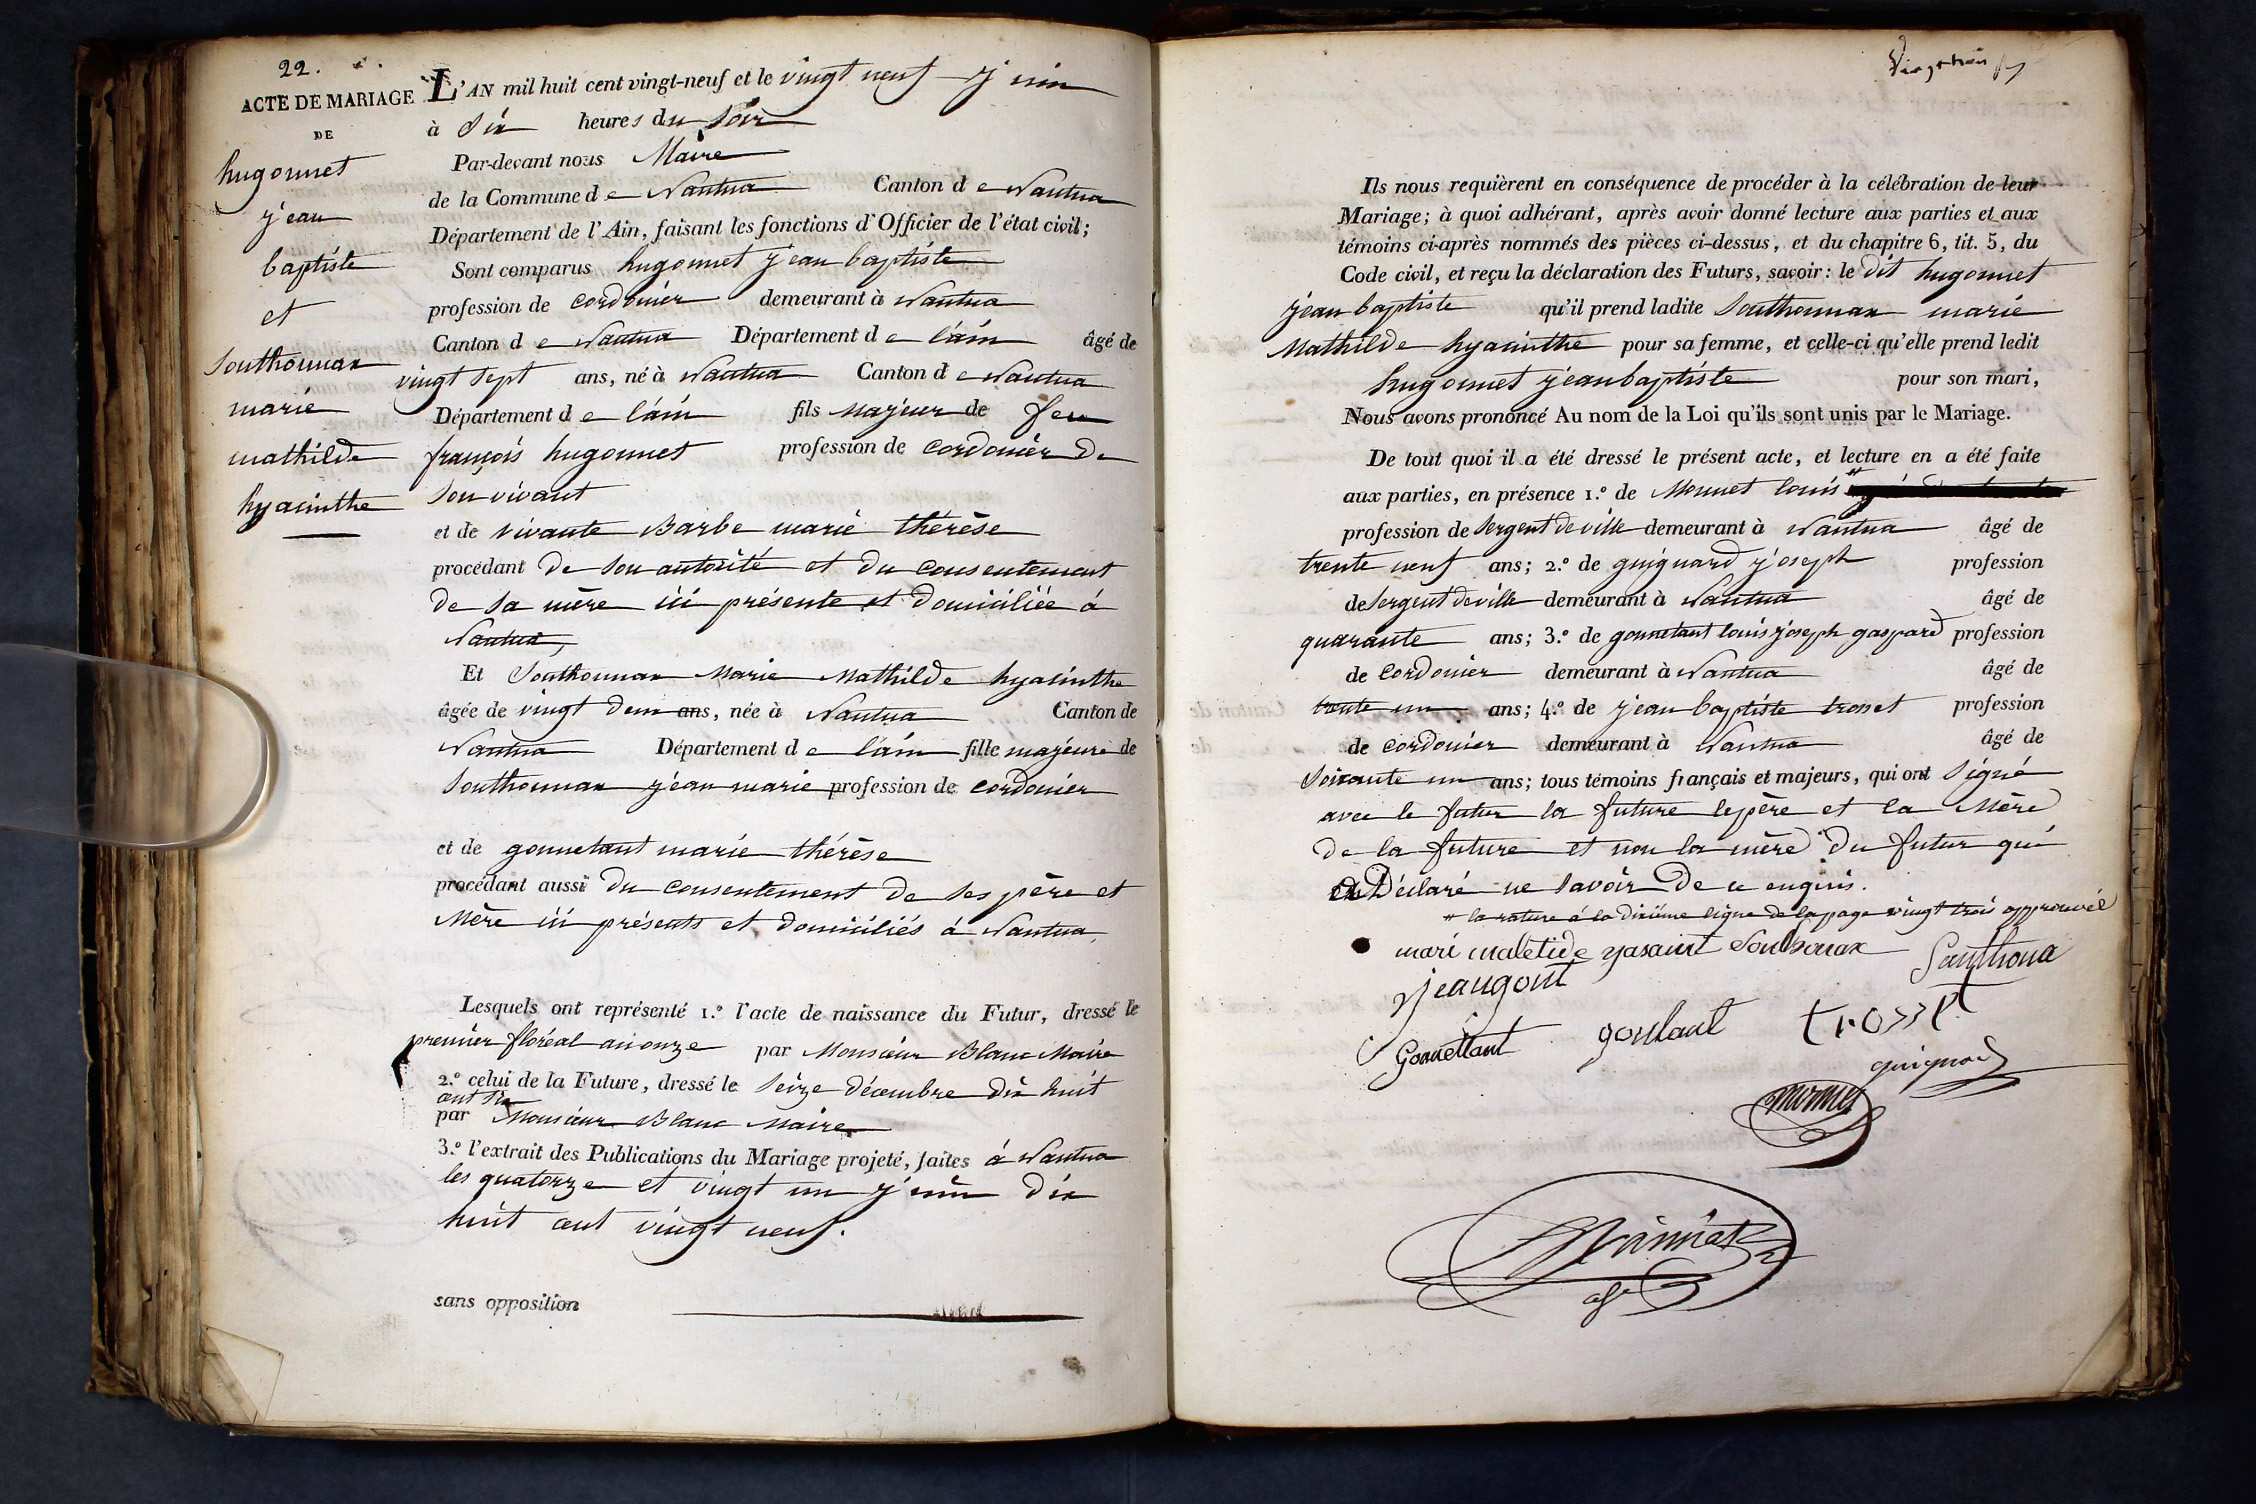 22.
ACTE DE MARIAGE
DE
hugonnet
jean
baptiste
et
Southonnax
marie
mathilde
hyacinthe
L'AN mil huit cent vingt-neuf et le vingt neuf juin
à Six heures du Soir
Par-devant nous Maire
de la Commune de Nantua Canton de Nantua
Département de l'Ain, faisant les fonctions d'Officier de l'état civil;
Sont comparus hugonnet jean baptiste
profession de cordonier demeurant à Nantua
Canton de Nantua Département de l'ain âgé de
vingt Sept ans, né à Nantua Canton de Nantua
Département de l'ain fils majeur de feu
françois hugonnet profession de cordonier de
Son vivant
et de vivante Barbe marie thérèse
procédant de Son autorité et du consentement
de Sa mère ici présente et domiciliée à
Nantua,
Et Southonnax Marie Mathilde hyacinthe
âgée de vingt deux ans, née à Nantua Canton de
Nantua Département de l'ain fille majeure de
Southonnax jean marie profession de cordonier
et de gonnetant marie thérèse
procédant aussi du consentement de Ses père et
Mère ici présents et domiciliés à Nantua,
Lesquels ont représenté 1.º l'acte de naissance du Futur, dressé le
premier floréal an onze par Monsieur Blanc Maire
2.º celui de la Future, dressé le Seize décembre dix huit
cent Six
par Monsieur Blanc Maire
3.º l'extrait des Publications du Mariage projeté, faites à Nantua
les quatorze et vingt un juin dix
huit cent vingt neuf.
sans opposition
Vingt trois
Ils nous requièrent en conséquence de procéder à la célébration de leur
Mariage; à quoi adhérant, après avoir donné lecture aux parties et aux
témoins ci-après nommés des pièces ci-dessus, et du chapitre 6, tit. 5, du
Code civil, et reçu la déclaration des Futurs, savoir: le dit hugonnet
jean baptiste qu'il prend ladite Southonnax marie
Mathilde hyacinthe pour sa femme, et celle-ci qu'elle prend ledit
hugonnet jean baptiste pour son mari,
Nous avons prononcé Au nom de la Loi qu'ils sont unis par le Mariage.
De tout quoi il a été dressé le présent acte, et lecture en a été faite
aux parties, en présence 1.º de Monnet louis #
profession de Sergent de ville demeurant à Nantua âgé de
trente neuf ans; 2.º de guignard joseph profession
de Sergent de ville demeurant à Nantua âgé de
quarante ans; 3.º de gonnetant louis joseph gaspard profession
de cordonier demeurant à Nantua âgé de
trente un ans; 4.º de jean baptiste trosset profession
de cordonier demeurant à Nantua âgé de
Soixante un ans; tous témoins français et majeurs, qui ont Signé
avec le futur la future le père et la Mère
de la future et non la mère du futur qui
a Déclaré ne Savoir De ce enquis.
# la rature à la dixième ligne de la page vingt trois approuvée
mari maletide yasaint Southonax Southona
jeaugont
Gonnettant gontant trosset
guignard
monnet